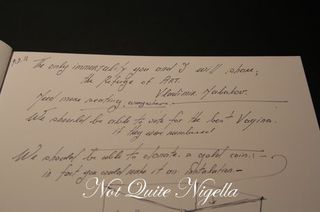 The only immortality you and I will share,
the Refuge of ART.
Vladimir Nabokov.
Need more seating,
We should be able to vote for the best Vagina.
if they were numbered!
We should be able to donate a gold coin! —
in fact you could make it an installation —
Not Quite Nigella